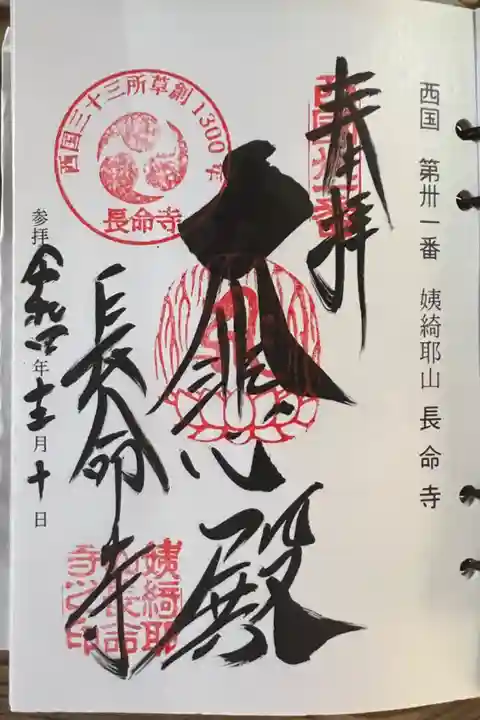 西国 第卅一番 姨綺耶山 長命寺
奉拝
西国卅一番
大悲殿
西国三十三所草創1300年
長命寺
長命寺
姨綺耶山長命寺之印
参拝 令和四年十二月十日